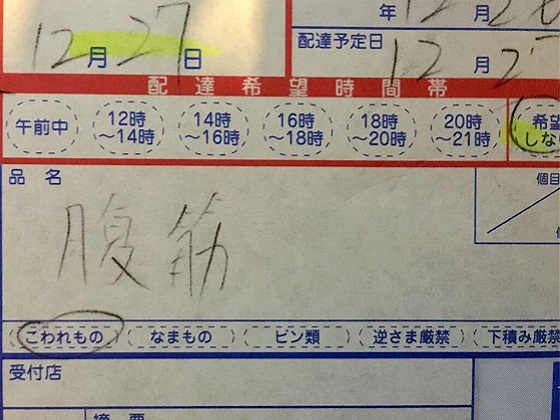 年 12 月 2
12月27日
配達予定日
12 月 2
配達希望時間帯
午前中 12時～14時 14時～16時 16時～18時 18時～20時 20時～21時 希望しな
品名
個
腹筋
こわれもの なまもの ビン類 逆さま厳禁 下積み厳禁
受付店
摘要